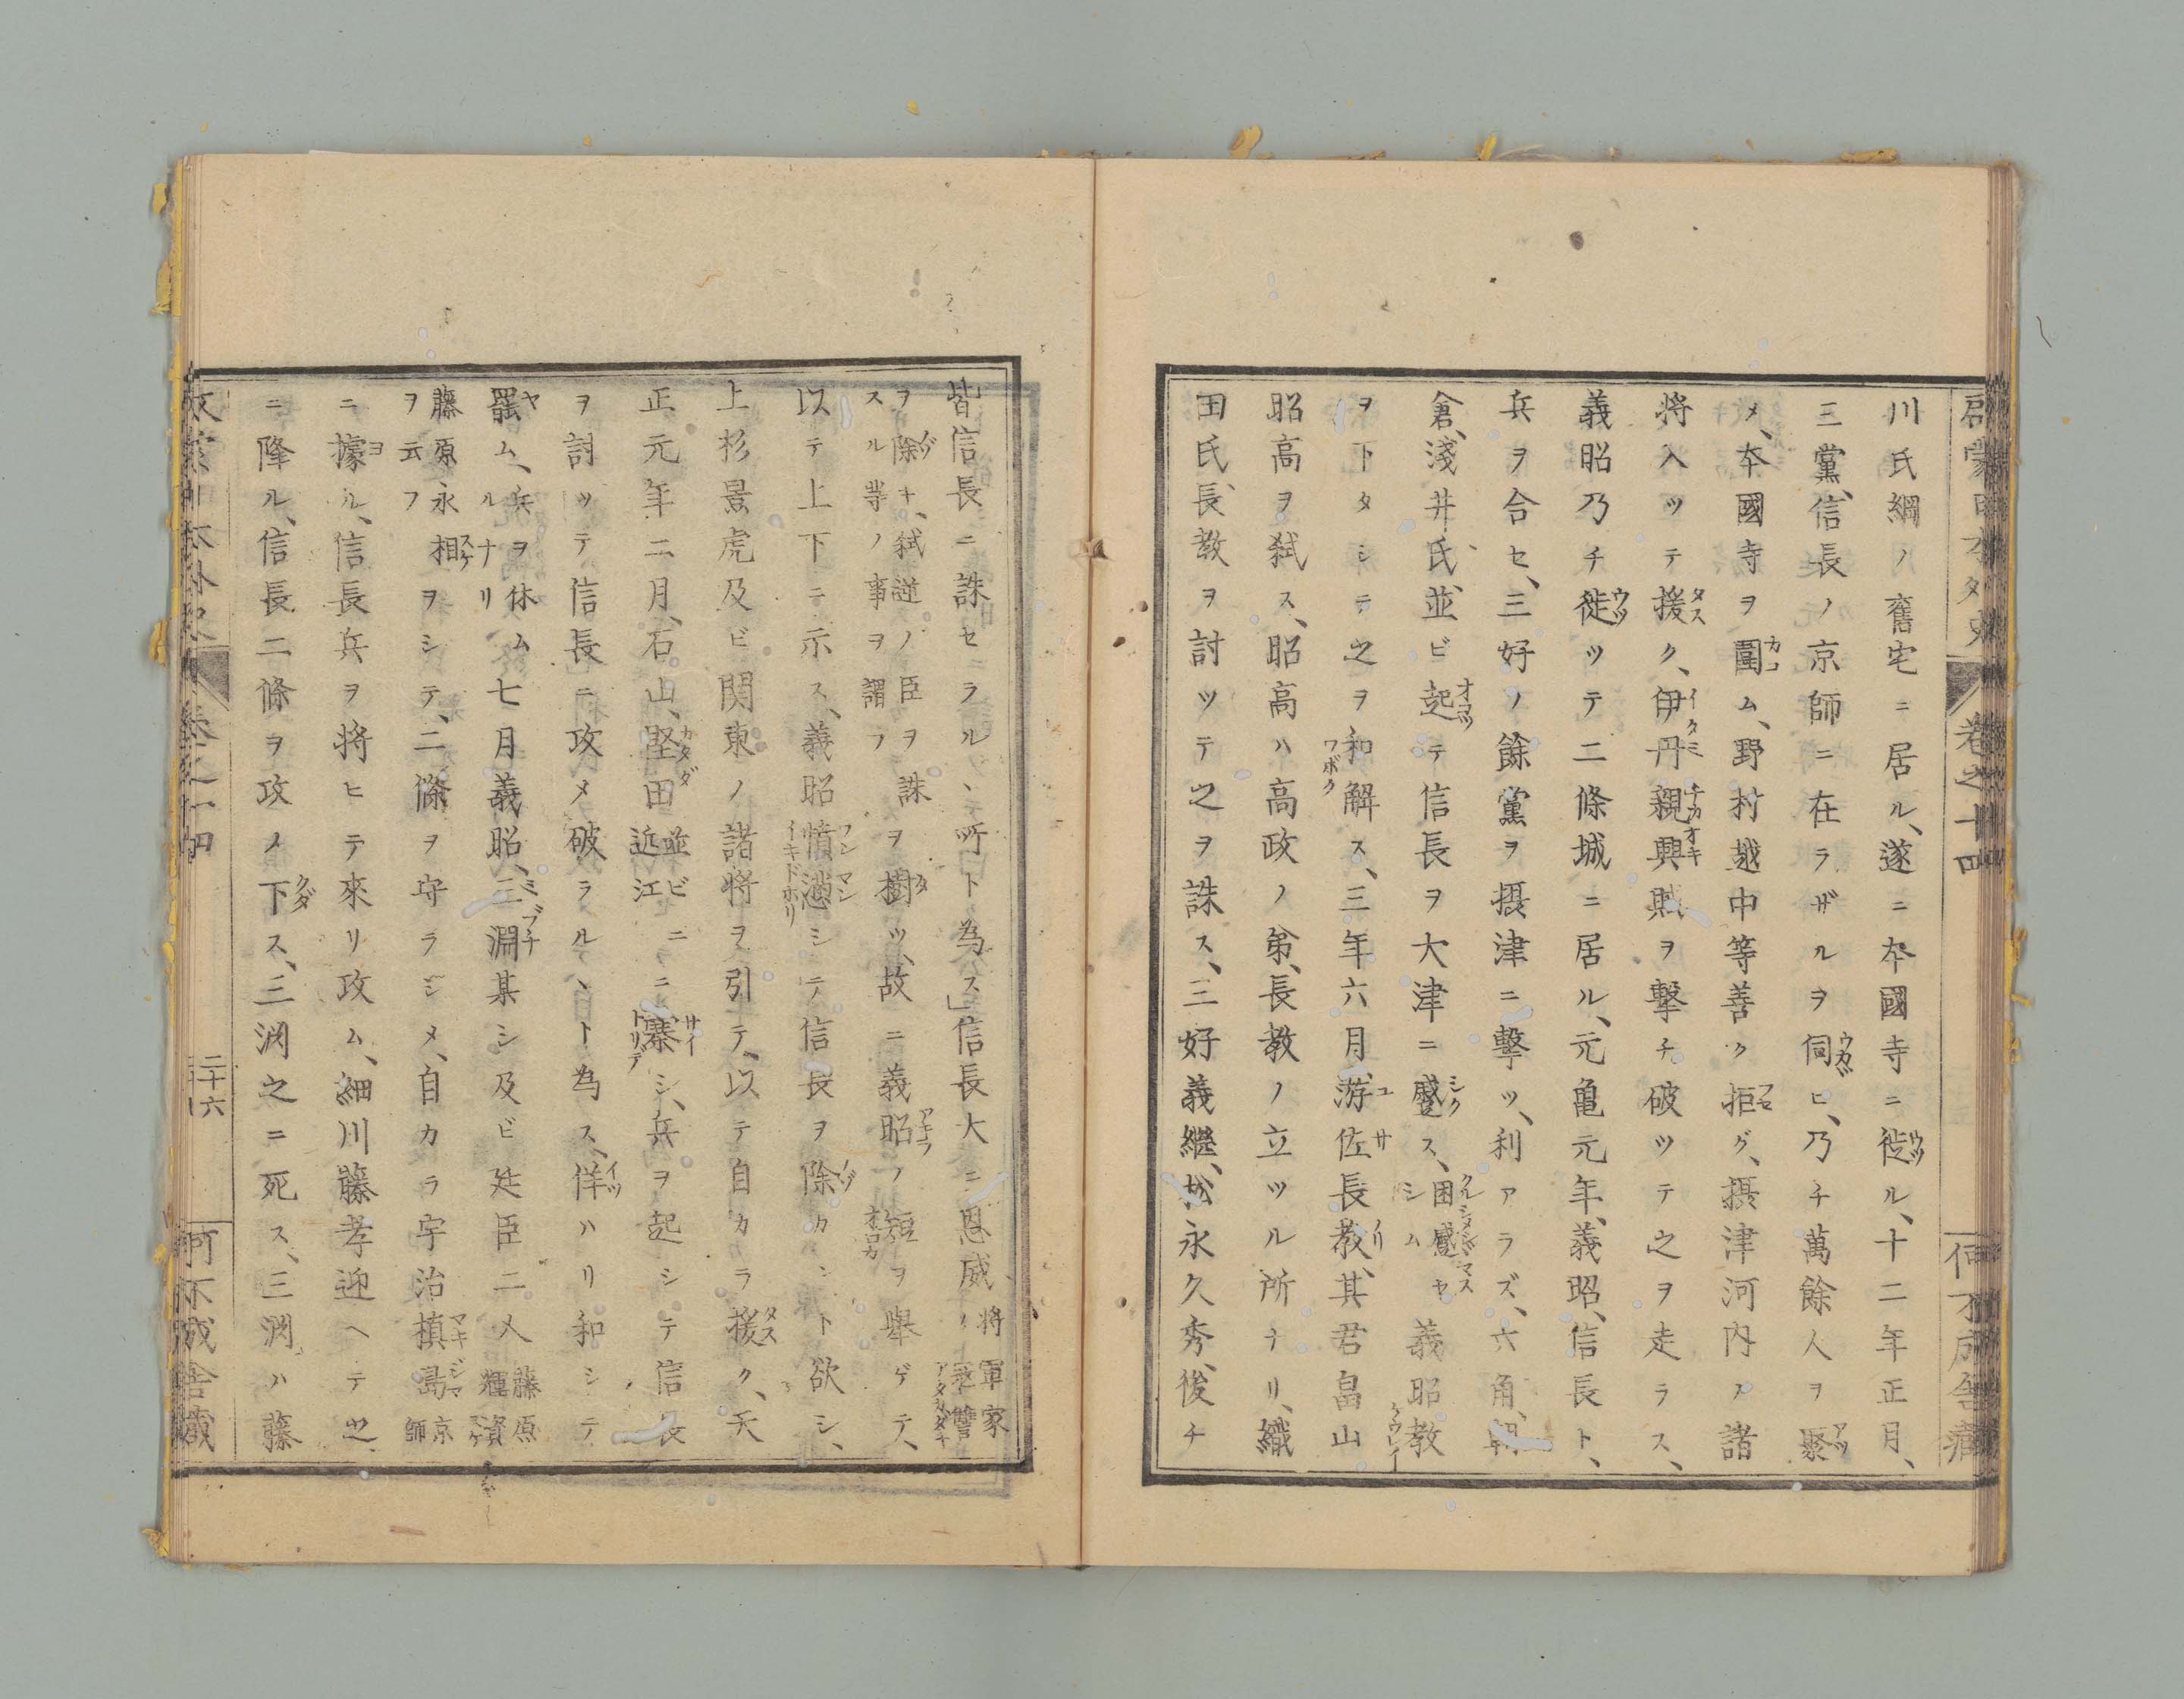 川氏綱ノ舊宅ニ居ル、遂ニ本國寺ニ徙ル、十二年正月、
三黨、信長ノ京師ニ在ラザルヲ伺ヒ、乃チ萬餘人ヲ聚
メ、本國寺ヲ圍ム、野村越中等善ク拒グ、摂津河内ノ諸
将入ッテ援ク、伊丹親興賊ヲ撃チ破ツテ之ヲ走ラス、
義昭乃チ徙ツテ二條城ニ居ル、元亀元年、義昭、信長ト、
兵ヲ合セ、三好ノ餘黨ヲ摂津ニ撃ツ、利アラズ、六角、朝
倉、淺井氏、並ビ起テ信長ヲ大津ニ蹙ス、困蹙セシム義昭教
ヲ下タシテ之ヲ和解ス、三年六月、游佐長教、其君畠山
昭高ヲ弑ス、昭高ハ高政ノ弟、長教ノ立ツル所ナリ、織
田氏、長教ヲ討ツテ之ヲ誅ス、三好義継、松永久秀、後チ
皆信長ニ誅セラルヽ所ト為ス」信長大ニ恩威将軍家ノ怨讐
ヲ除キ、弑逆ノ臣ヲ誅スル等ノ事ヲ謂フヲ樹ツ、故ニ義昭ノ短ヲ舉ゲテ、
以テ上下ニ示ス、義昭憤懣シテ信長ヲ除カント欲シ、
上杉景虎及ビ関東ノ諸将ヲ引テ、以テ自カラ援ク、天
正元年二月、石山、堅田並ビニ近江ニ寨シ、兵ヲ起シテ信長
ヲ討ッテ信長ニ攻メ破ラルヽト為ス、佯ハリ和シテ
罷ム、兵ヲ休ムルナリ七月義昭、三淵某シ及ビ廷臣二人藤原輝資
藤原永相ヲ云フヲシテ、二條ヲ守ラシメ、自カラ宇治槙島京師
ニ據ル、信長兵ヲ将ヒテ來リ攻ム、細川藤孝迎ヘテ之
ニ降ル、信長二條ヲ攻ノ下ス、三渕之ニ死ス、三渕ハ藤
巻之十四
二十六